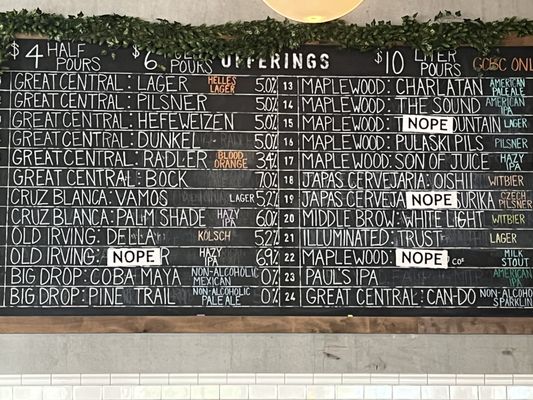 $4 HALF POURS $6 POURS OFFERINGS $10 LITER POURS GCBC ONLY
GREAT CENTRAL: LAGER HELLES LAGER 5.0%
GREAT CENTRAL: PILSNER 5.0%
GREAT CENTRAL: HEFEWEIZEN 5.0%
GREAT CENTRAL: DUNKEL 5.0%
GREAT CENTRAL: RADLER BLOOD ORANGE 3.4%
GREAT CENTRAL: BOCK 7.0%
CRUZ BLANCA: VAMOS LAGER 5.2%
CRUZ BLANCA: PALM SHADE HAZY IPA 6.0%
OLD IRVING: DELLA KÖLSCH 5.2%
OLD IRVING: NOPE R HAZY IPA 6.9%
BIG DROP: COBA MAYA NON-ALCOHOLIC MEXICAN 0%
BIG DROP: PINE TRAIL NON-ALCOHOLIC PALE ALE 0%
13 MAPLEWOOD: CHARLATAN AMERICAN PALE ALE
14 MAPLEWOOD: THE SOUND AMERICAN IPA
15 MAPLEWOOD: NOPE UNTAIN LAGER
16 MAPLEWOOD: PULASKI PILS PILSNER
17 MAPLEWOOD: SON OF JUICE HAZY IPA
18 JAPAS CERVEJARIA: OISHII WITBIER
19 JAPAS CERVEJA NOPE URIKA CZECH PILSNER
20 MIDDLE BROW: WHITE LIGHT WITBIER
21 ILLUMINATED: TRUST LAGER
22 MAPLEWOOD: NOPE CO2 MILK STOUT
23 PAUL'S IPA AMERICAN IPA
24 GREAT CENTRAL: CAN-DO NON-ALCOHO SPARKLIN